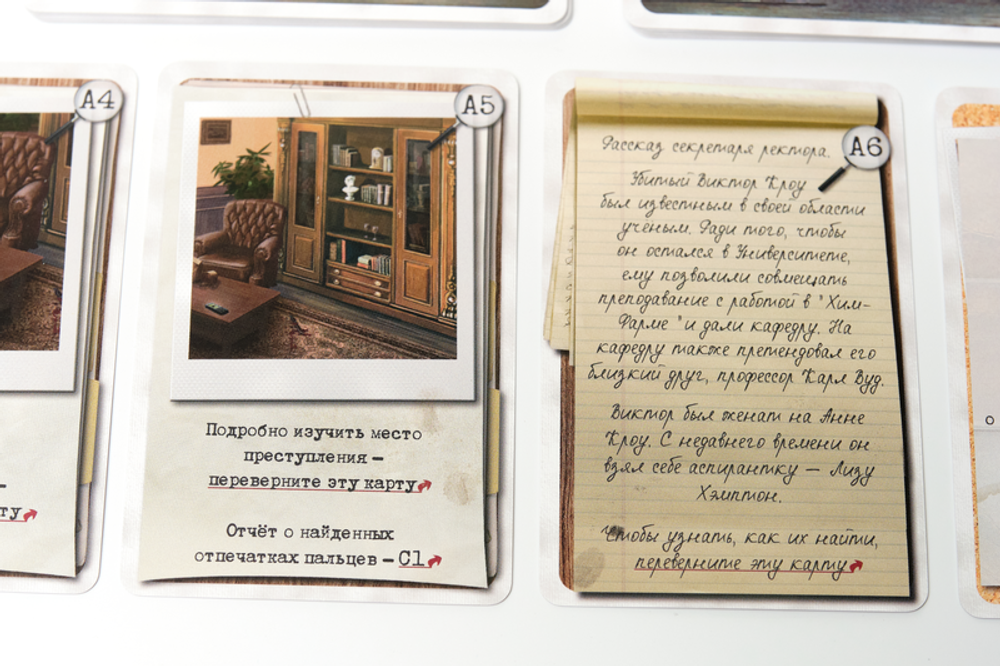 A4
ту
A5
Подробно изучить место
преступления –
переверните эту карту
Отчёт о найденных
отпечатках пальцев – С1
A6
Рассказ секретаря ректора.
Убитый Виктор Кроу
был известным в своей области
учёным. Ради того, чтобы
он остался в Университете,
ему позволили совмещать
преподавание с работой в "Хим-
Фарме" и дали кафедру. На
кафедру также претендовал его
близкий друг, профессор Карл Вуд.
Виктор был женат на Анне
Кроу. С недавнего времени он
взял себе аспирантку – Лизу
Хэмптон.
Чтобы узнать, как их найти,
переверните эту карту